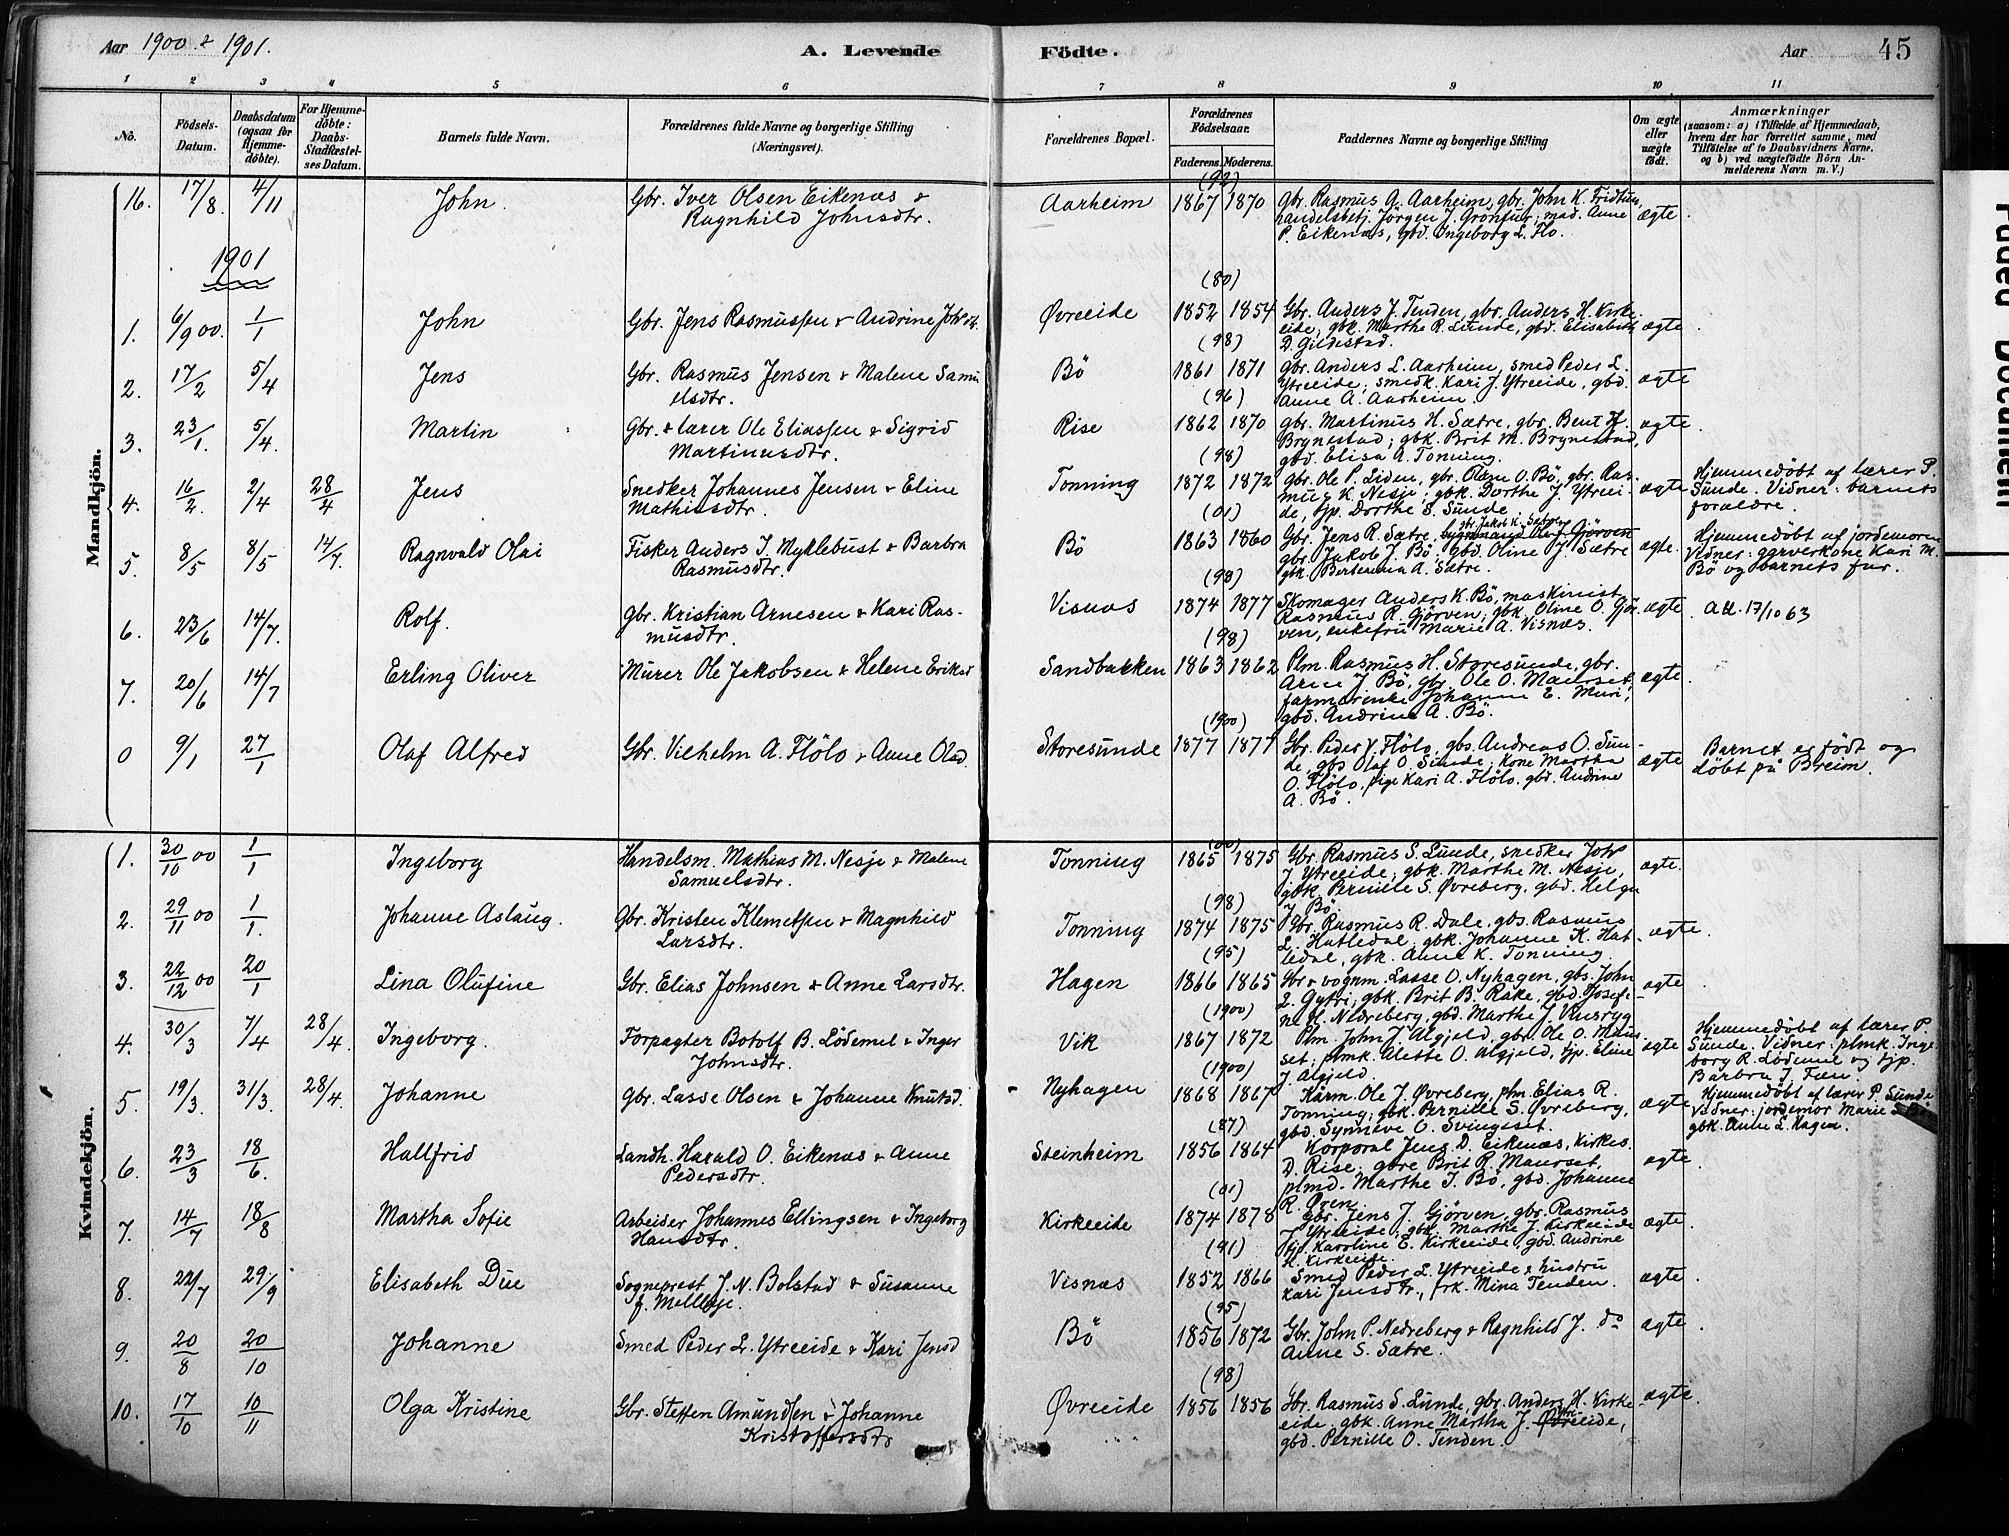 Aar 1900 & 1901.
A. Levende Födte.
Aar
45
1 2 3 4 5 6 7 8 9 10 11
No.
Födsels-Datum.
Daabsdatum (ogsaa for Hjemmedöbte).
For Hjemmedöbte: Daabs-Stadfæstelses Datum.
Barnets fulde Navn.
Forældrenes fulde Navne og borgerlige Stilling (Næringsvei).
Forældrenes Bopæl.
Forældrenes Födselsaar.
Faderens. Moderens.
Faddernes Navne og borgerlige Stilling
Om ægte eller uægte födt.
Anmærkninger (saasom: a) i Tilfælde af Hjemmedaab, hvem der har forrettet samme, med Tilföielse af to Daabsvidners Navne, og b) ved uægtefödte Börn Anmelderens Navn m. V.)
Mandkjön.
16. 17/8 4/11 John. Gbr. Iver Olsen Eikenæs & Ragnhild Johnsdtr. Aarheim (92) 1867 1870 Gbr. Rasmus A. Aarheim, gbr. John K. Fridtun, handelsbetj. Jörgen J. Grönfur; mad. Anne P. Eikenæs, gbd. Ingeborg L. Flo. ægte.
1901
1. 6/9 00. 1/1 John Gbr. Jens Rasmussen & Andrine Johsdtr. Øvreeide (80) 1852 1854 Gbr. Anders J. Tenden, gbr. Anders H. Kirkeeide, gbk. Marthe R. Lunde, gbd. Elisabeth D. Gildestad. ægte.
2. 17/2 5/4 Jens Gbr. Rasmus Jensen & Malene Samuelsdtr. Bö (98) 1861 1871 gbr. Anders L. Aarheim, smed Peder L. Ytreeide; smedk. Kari J. Ytreeide, gbd. Anne A. Aarheim. ægte
3. 23/1. 5/4. Martin Gbr. & lærer Ole Eliassen & Sigrid Martinusdtr. Rise (96) 1862 1870 gbr. Martinus H. Sætre, gbr. Bent H. Brynestad; gbk. Brit M. Brynestad, gbd. Elisa A. Tonning. ægte
4. 16/2. 2/4 28/4 Jens Snedker Johannes Jensen & Eline Mathiasdtr. Tonning (98) 1872 1872 gbr. Ole P. Liden, gbr. Olare O. Bö, gbr. Rasmus K. Nesje; gbk. Dorthe J. Ytreeide, tjp. Dorthe S. Sunde ægte Hjemmedöbt af lærer P. Sunde. Vidner: barnets forældre.
5. 8/5 8/5 14/7. Ragnvald Olai Fisker Anders I. Myklebust & Barbra Rasmusdtr. Bö (01) 1863 1860 Gbr. Jens R. Sætre, gbr. Jakob K. Sætre, gbr. Jakob J. Bö, gbd. Oline J. Sætre gbk. Bertemina A. Sætre. ægte. Hjemmedöbt af jordemoren Vidner: garverkone Kari M. Bö og barnets far.
6. 23/6 14/7. Rolf. gbr. Kristian Arnesen & Kari Rasmusdtr. Visnæs (98) 1874 1877 Skomager Anders K. Bö, maskinist Rasmus R. Gjörven; gbk. Oline O. Gjörven, enkefru Marie A. Visnæs. ægte. att. 17/10 63
7. 20/6 14/7 Erling Oliver Murer Ole Jakobsen & Helene Eriksd Sandbakken (98) 1863 1862 Plm. Rasmus H. Storesunde, gbr. Arne J. Bö, gbr. Ole O. Maurset, Johanne E. Muri, gbd. Andrine A. Bö. ægte.
0 9/1 27/1 Olaf Alfred Gbr. Vilhelm A. Flölo & Anne Olsd. Storesunde (1900) 1877 1877 Gbr. Peder V. Flölo, gbs. Andreas O. Sunde, gbs Olaf O. Sunde; kone Martha O. Flölo, pige Kari A. Flölo, gbd. Andrine A. Bö. ægte Barnet er födt og döbt på Breim.
Kvindekjön.
1. 30/10 00 1/1 Ingeborg Handelsm. Mathias M. Nesje & Malene Samuelsdtr. Tonning (00) 1865 1875 Gbr. Rasmus S. Lunde, snedker Johs J. Ytreeide; gbk. Marthe M. Nesje, gbk. Pernille S. Øvreberg, gbd. Helga J. Bö. ægte.
2. 29/11 00 1/1. Johanne Aslaug. Gbr. Kristen Klemetsen & Magnhild Larsdtr. Tonning (98) 1874 1875 Gbr. Rasmus R. Dale, gbs. Rasmus L. Hatledal, gbk. Johanne K. Hatledal, gbk. Anne K. Tonning. ægte.
3. 22/12 00 20/1 Lina Olufine Gbr. Elias Johnsen & Anne Larsdtr. Hagen (95) 1866 1865 Gbr & vognm. Lasse O. Nyhagen, gbs. John L. Gytri; gbk. Brit B. Rake, gbd. Josefine H. Nedreberg, gbd. Marthe J. ægte
4. 30/3 7/4 28/4. Ingeborg. Forpagter Botolf B. Lödemel & Inger Johnsdtr. Vik (1900) 1867 1872 Plm. John J. Algjeld, gbr. Ole O. Maurset; plmk. Alette O. Algjeld, tjp. Eline J. Algjeld. ægte Hjemmedöbt af lærer P. Sunde. Vidner: plmk. Ingeborg R. Lödemel og tjp. Barbra J. Faen.
5. 19/3. 31/3. 28/4. Johanne Gbr. Lasse Olsen & Johanne Knutsd. Nyhagen (1900) 1868 1867 Kårm. Ole J. Øvreberg, plm. Elias R. Tonning; gbk. Pernille S. Øvreberg, gbd. Synneve O. Svingset. ægte Hjemmedöbt af lærer P. Sunde Vidner: jordemor Marie S. Bö gbk. Anne L. Hagen.
6. 23/3 18/6. Hallfrid Landh. Harald O. Eikenæs & Anne Pedersdtr. Steinheim (87) 1856 1864 Korporal Jens D. Eikenæs, kirkes. D. Rise; gbre Brit R. Maurset, plmd. Marthe J. Bö, gbd. Johanne R. Øren ægte.
7. 14/7 18/8 Martha Sofie Arbeider Johannes Ellingsen & Ingeborg Hansdtr. Kirkeeide (01) 1874 1878 Gbr. Jens J. Gjörven, gbr. Rasmus J. Ytreeide; gbk. Marthe J. Kirkeeide tjp. Karoline E. Kirkeeide, gbd. Andrine H. Kirkeeide. ægte.
8. 22/7 29/9 Elisabeth Due Sogneprest J. N. Bolstad & Susanne f. Mellbye. Visnæs (91) 1852 1866 Smed Peder L. Ytreeide & hustru Kari Jensdtr., frk. Mina Tenden. ægte.
9. 20/8 20/10 Johanne Smed Peder L. Ytreeide & Kari Jensd Bö (95) 1856 1872 Gbr. John P. Nedreberg & Ragnhild J. do Anne S. Sætre. ægte.
10. 17/10 10/11 Olga Kristine Gbr. Steffen Amundsen & Johanne Kristoffersdtr Øvreeide (98) 1856 1856 Gbr. Rasmus S. Lunde, gbr. Anders H. Kirkeeide gbk. Anne Martha J. Ytreeide, gbd. Pernille O. Tenden. ægte.
Faded Document